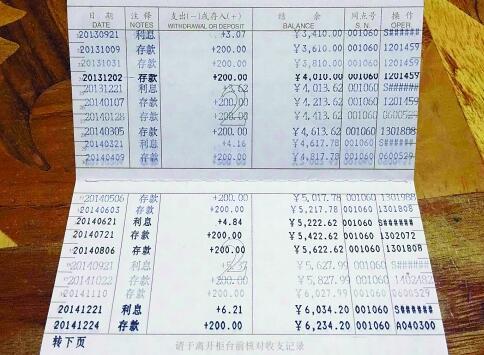 日 期 注 释 支出(-)或存入(+) 结 余 网点号 操作
DATE NOTES WITHDRAWAL OR DEPOSIT BALANCE S.N. OPER.
20130921 利息 +3.07 ¥3,410.00 001060 S######
20131009 存款 +200.00 ¥3,610.00 001060 1201459
20131031 存款 +200.00 ¥3,810.00 001060 1201459
20131202 存款 +200.00 ¥4,010.00 001060 1201459
20131221 利息 +3.62 ¥4,013.62 001060 S######
20140107 存款 +200.00 ¥4,213.62 001060 1201459
20140128 存款 +200.00 ¥4,413.62 001060 0600529
20140305 存款 +200.00 ¥4,613.62 001060 1301808
20140321 利息 +4.16 ¥4,617.78 001060 S######
20140409 存款 +200.00 ¥4,817.78 001060 0600529
20140506 存款 +200.00 ¥5,017.78 001060 1301988
20140603 存款 +200.00 ¥5,217.78 001060 1301808
20140621 利息 +4.84 ¥5,222.62 001060 S######
20140721 存款 +200.00 ¥5,422.62 001060 1302072
20140806 存款 +200.00 ¥5,622.62 001060 1301808
20140921 利息 +5.37 ¥5,627.99 001060 S######
存款 +200.00 ¥5,827.99 001060 1402482
20141110 存款 +200.00 ¥6,027.99 001060 0600529
20141221 利息 +6.21 ¥6,034.20 001060 S######
20141224 存款 +200.00 ¥6,234.20 001060 A040300
转下页 请于离开柜台前核对收支记录